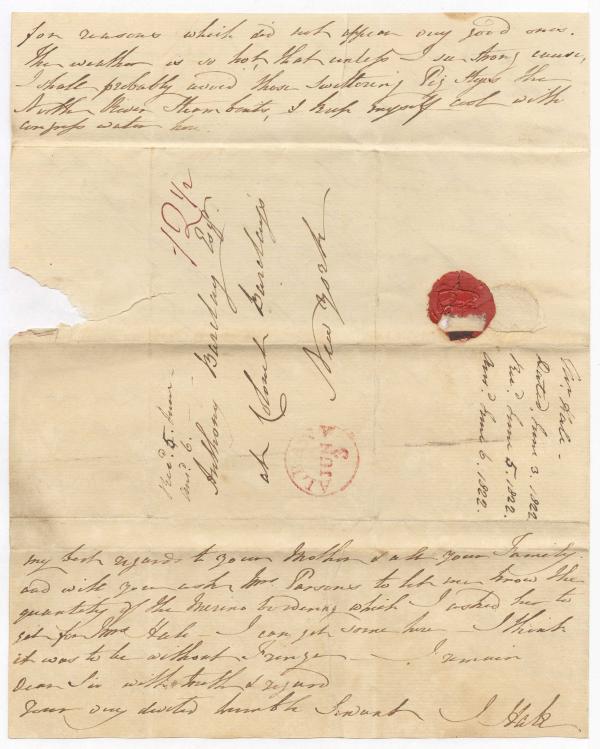 for reasons which did not appear very good ones.
The weather is so hot, that unless I see strong cause,
I shall probably avoid those sweltering Pig Styes the
North River Steamboats, I keep myself cool with
congress water here.
12½
Anthony Barclay Esq.
at Colonel Barclay's
New York
Rec.d 5. June
ans.d 6.
ALBANY
JUN
3
Dated June 3. 1822
Rec.d June 5 1822.
Ans.d June 6. 1822.
my best regards to your Mother & all your Family.
and will you ask Mrs. Parsons to let me know the
quantity of the Merino bordering which I asked her to
get for Mrs Hale - I can get some here - I think
it was to be without Fringe - I remain
Dear Sir with truth & regard
Your very devoted humble Servant J Hale